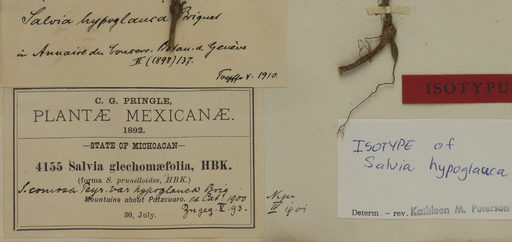 Salvia hypoglauca Briquet
in Annuaire du conserv. Botan. d. Genève
II (1898) 137.
V. 1910.
C. G. PRINGLE,
PLANTÆ MEXICANÆ.
1892.
—STATE OF MICHOACAN—
4155 Salvia glechomæfolia, HBK.
(forma S. prunelloides, HBK.)
S. comosa Peyr. var hypoglauca Briq
Mountains about Patzcuaro.
30, July.
V. 93.
ISOTYPU
ISOTYPE of
Salvia hypoglauca
Determ. - rev. Kathleen M. Peterson